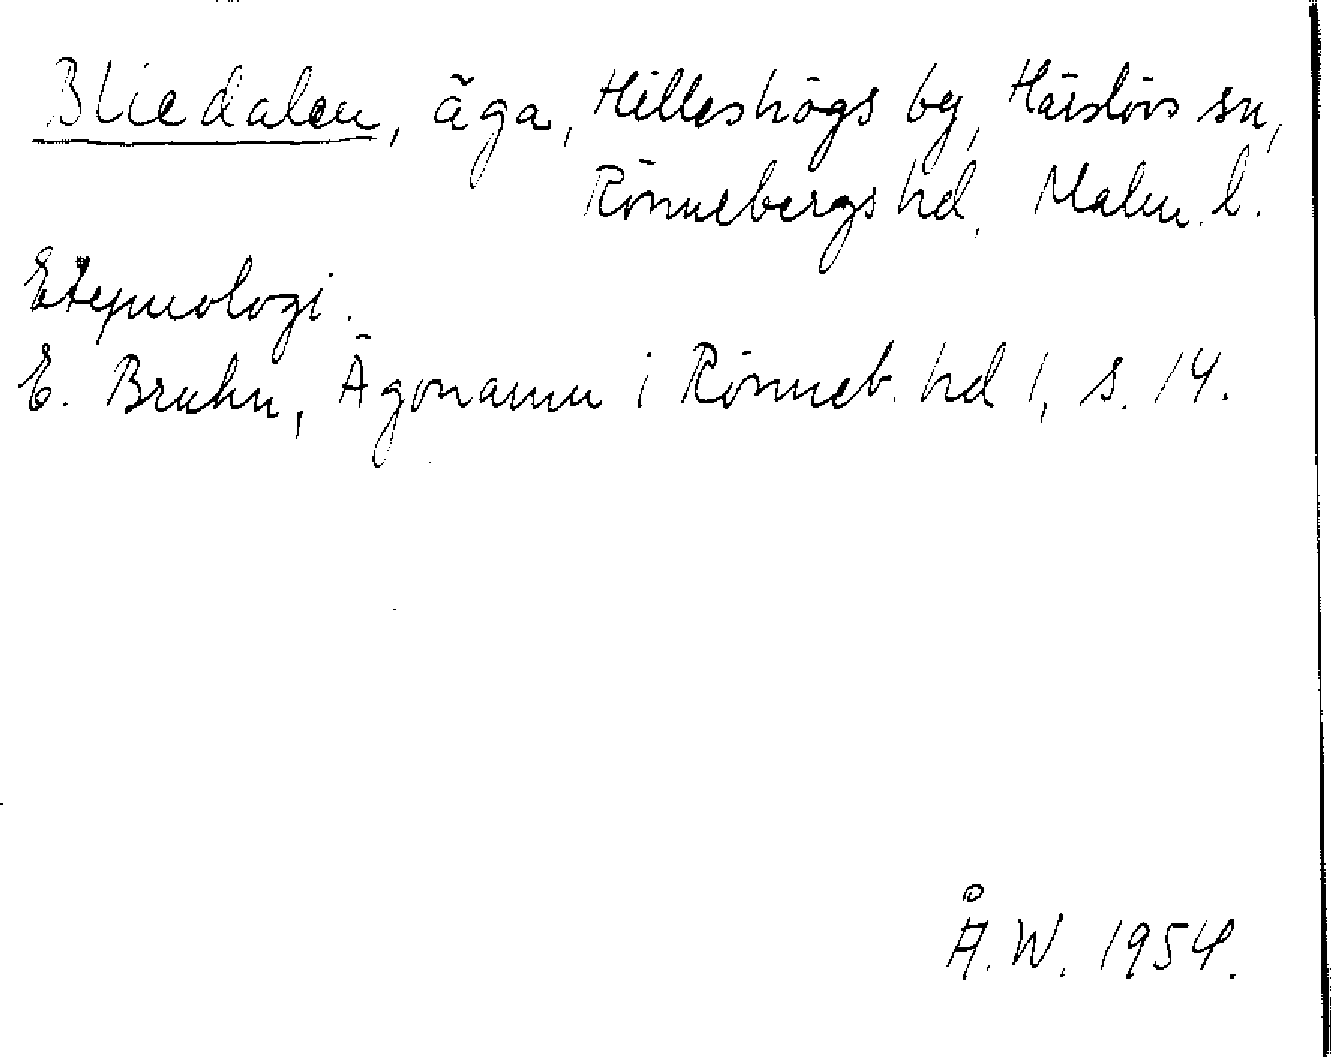 Bliedalen, äga, Hilleshögs by, Härslövs sn,
Rönnebergs hd, Malm. l.
Etymologi.
E. Bruhn, Ägonamn i Rönneb. hd 1, s. 14.
Å. W. 1954.